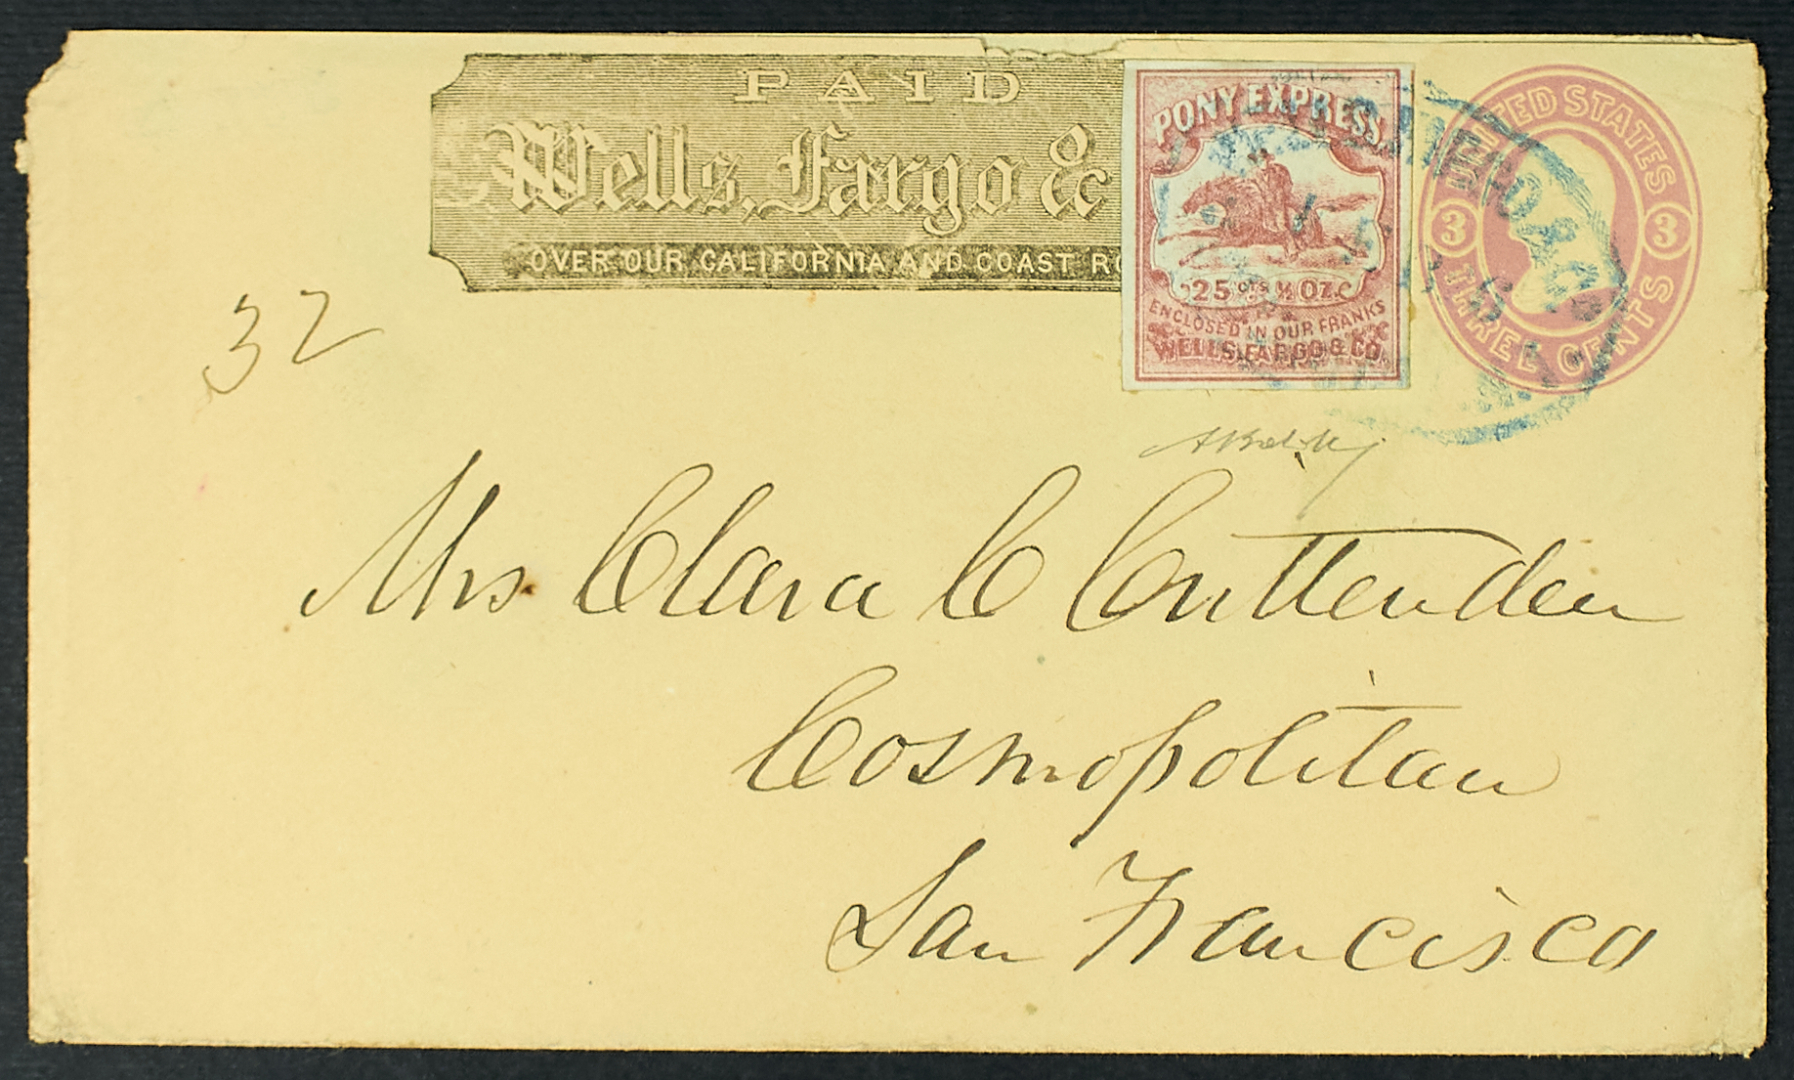 PAID
Wells, Fargo &
OVER OUR CALIFORNIA AND COAST RO
PONY EXPRESS
25 CTS ½ OZ.
ENCLOSED IN OUR FRANKS
WELLS, FARGO & CO.
UNITED STATES
3 3
THREE CENTS
32
Mrs Clara C Cruttenden
Cosmopolitan
San Francisco